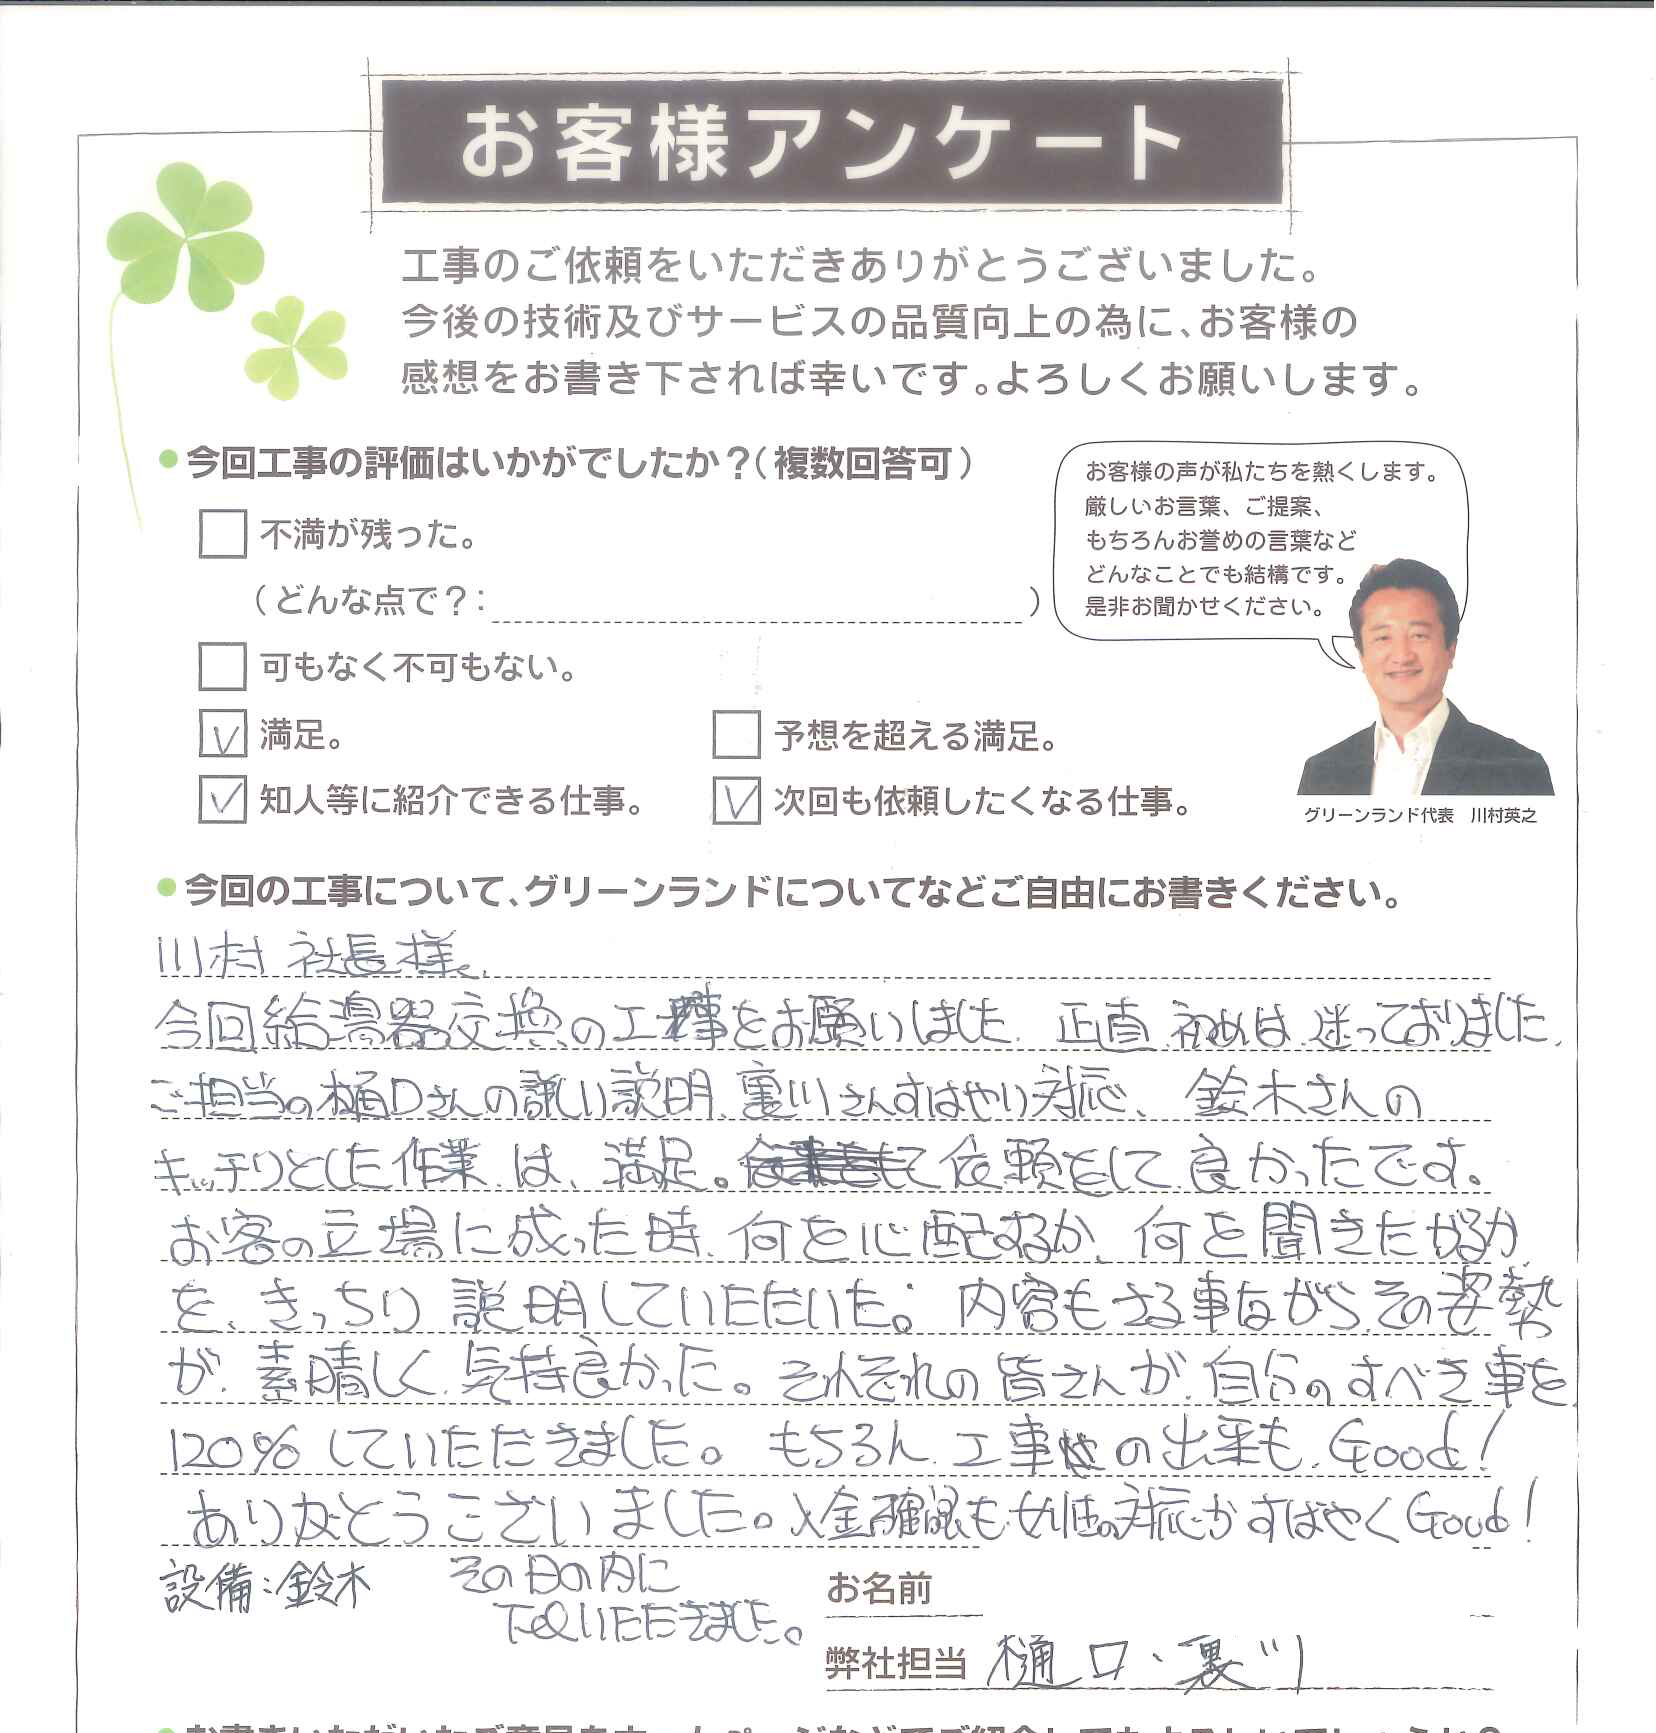 お客様アンケート
工事のご依頼をいただきありがとうございました。
今後の技術及びサービスの品質向上の為に、お客様の
感想をお書き下されば幸いです。よろしくお願いします。
今回工事の評価はいかがでしたか？（複数回答可）
不満が残った。
（どんな点で？：　）
可もなく不可もない。
満足。
予想を超える満足。
知人等に紹介できる仕事。
次回も依頼したくなる仕事。
お客様の声が私たちを熱くします。
厳しいお言葉、ご提案、
もちろんお誉めの言葉など
どんなことでも結構です。
是非お聞かせください。
グリーンランド代表　川村英之
今回の工事について、グリーンランドについてなどご自由にお書きください。
川村 社長様、
今回給湯器交換の工事をお願いしました。正直、初めは、迷っておりました。
ご担当の樋口さんの詳しい説明、裏川さんすばやい対応、鈴木さんの
キッチリとした作業は、満足。依頼をして良かったです。
お客の立場に成った時、何を心配するか、何を聞きたがるか
を、きっちり説明していただいた。内容もさる事ながら、その姿勢
が、素晴しく、気持良かった。それぞれの皆さんが、自分のすべき事を
120％していただきました。もちろん、工事の出来も、Good！
ありがとうございました。入金確認も女性の対応がすばやくGood！
その日の内に
Telいただきました。
設備：鈴木
お名前
弊社担当 樋口、裏川